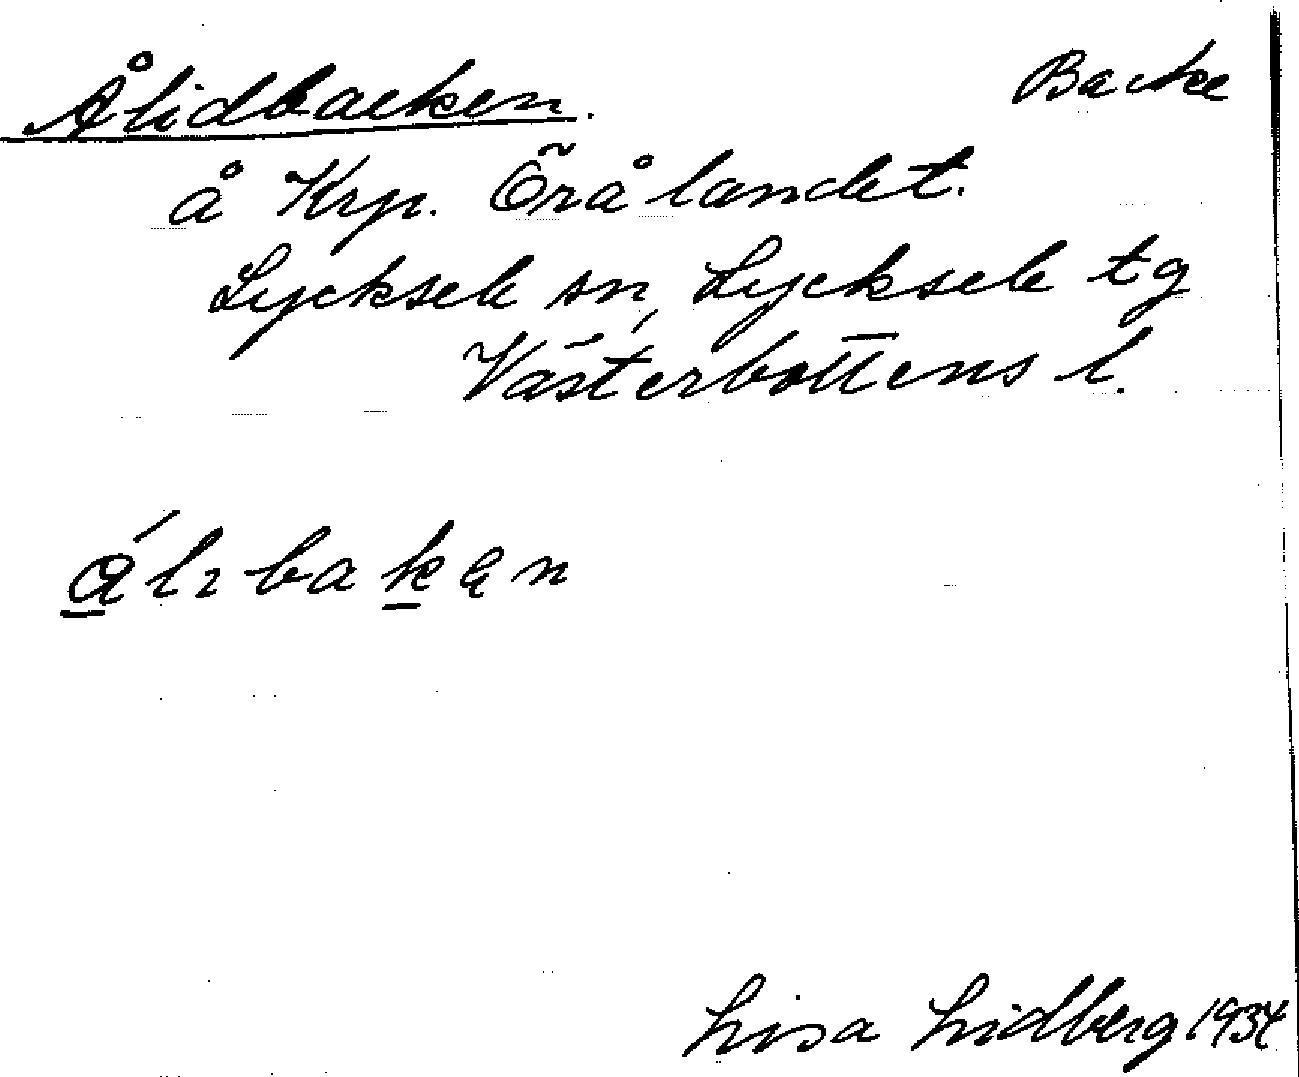 Ålidbacken. Backe
å Krp. Örålandet.
Lycksele sn, Lycksele tg
Västerbottens l.
ålıbakən
Lisa Lidberg 1934